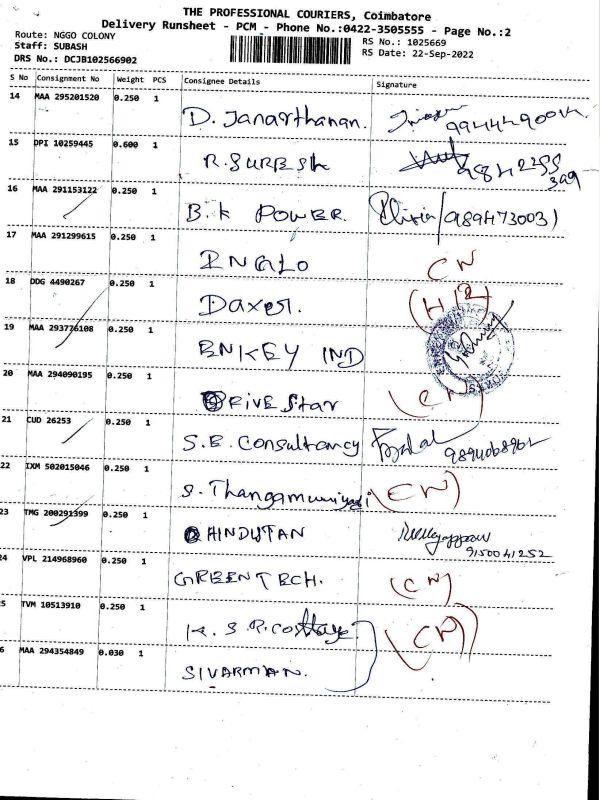 THE PROFESSIONAL COURIERS, Coimbatore
Delivery Runsheet - PCM - Phone No.:0422-3505555 - Page No.:2
Route: NGGO COLONY
Staff: SUBASH
DRS No.: DCJB102566902
RS No.: 1025669
RS Date: 22-Sep-2022
S No Consignment No Weight PCS Consignee Details Signature
14 MAA 295201520 0.250 1 D. Janarthanan.
15 DPI 10259445 0.600 1 R. SURESH
16 MAA 291153122 0.250 1 B.K POWER. 9894730031
17 MAA 291299615 0.250 1 INGLO CN
18 DDG 4490267 0.250 1 Daxer. (H/2)
19 MAA 293776108 0.250 1 ENKEY IND
20 MAA 294090195 0.250 1 FIVE Star (CN)
21 CUD 26253 0.250 1 S.B. Consultancy
22 IXM 502015046 0.250 1 S. Thangamuniyadi (CN)
23 TMG 200291399 0.250 1 HINDUTAN 9150041252
24 VPL 214968960 0.250 1 GREENTECH. (CN)
5 TVM 10513910 0.250 1 K. S. R. Cottage (CN)
6 MAA 294354849 0.030 1 SIVARMAN.